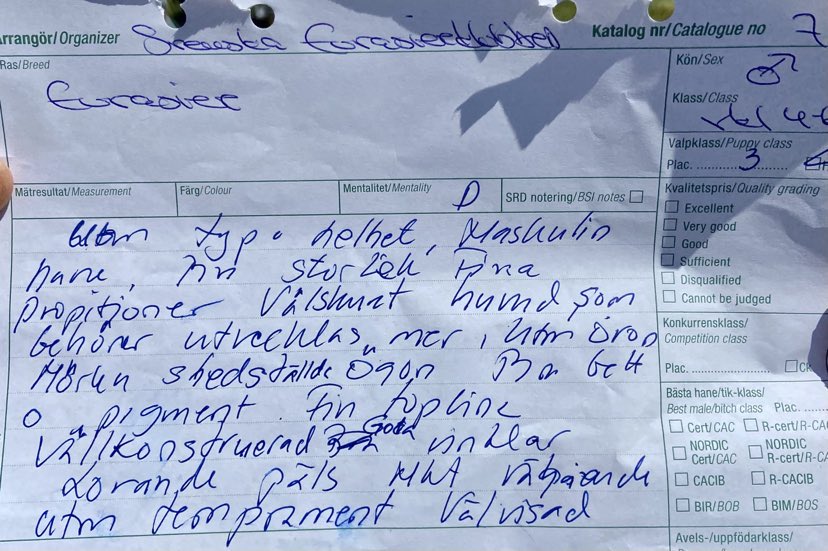 Arrangör/Organizer Svenska Eurasierklubben Katalog nr/Catalogue no 7
Ras/Breed
Eurasier
Kön/Sex
♂
Klass/Class
Valpklass/Puppy class
Plac. 3
Mätresultat/Measurement Färg/Colour Mentalitet/Mentality D SRD notering/BSI notes
Kvalitetspris/Quality grading
Excellent
Very good
Good
Sufficient
Disqualified
Cannot be judged
Konkurrensklass/
Competition class
Plac.
Bästa hane/tik-klass/
Best male/bitch class Plac.
Cert/CAC R-cert/R-CA
NORDIC Cert/CAC NORDIC R-cert/R-CA
CACIB R-CACIB
BIR/BOB BIM/BOS
Avels-/uppfödarklass/
utm typ o helhet, Maskulin
hane, Fin storlek Fina
propitioner Välskurt huvud som
behöver utvecklas mer, utm öron
Mörka snedställde ögon Bra bett
o pigment. Fin topline
Vällkonstruerad Goda vinklar
Lovande päls Mkt
utm temprament Välvisad